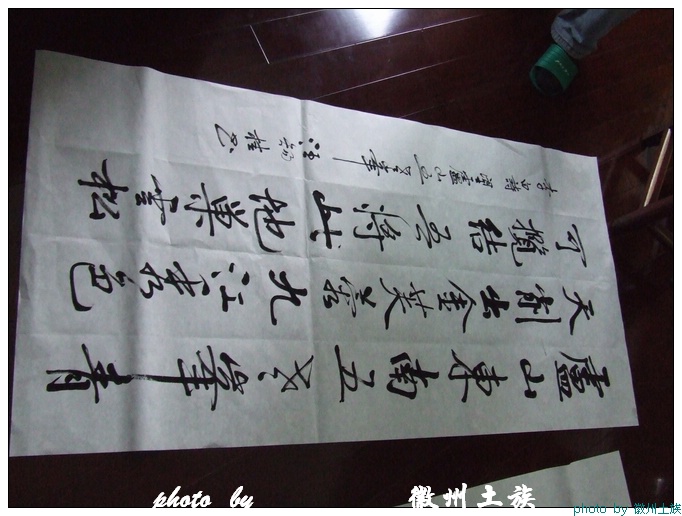 廬山東南五老峯青
天削出金芙蓉九江秀色
可攬結吾將此地巢雲松
李白詩望廬山五老峯
photo by 徽州土族
photo by 徽州土族